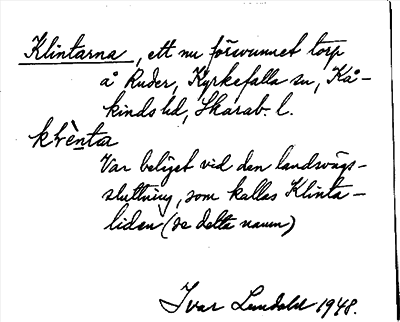 Klintarna, ett nu försvunnet torp
å Ruder, Kyrkefalla sn, Kå-
kinds hd, Skarab. l.
klènta
Var beläget vid den landsvägs-
sluttning, som kallas Klinta-
liden (se detta namn)
Ivar Lundahl 1948.